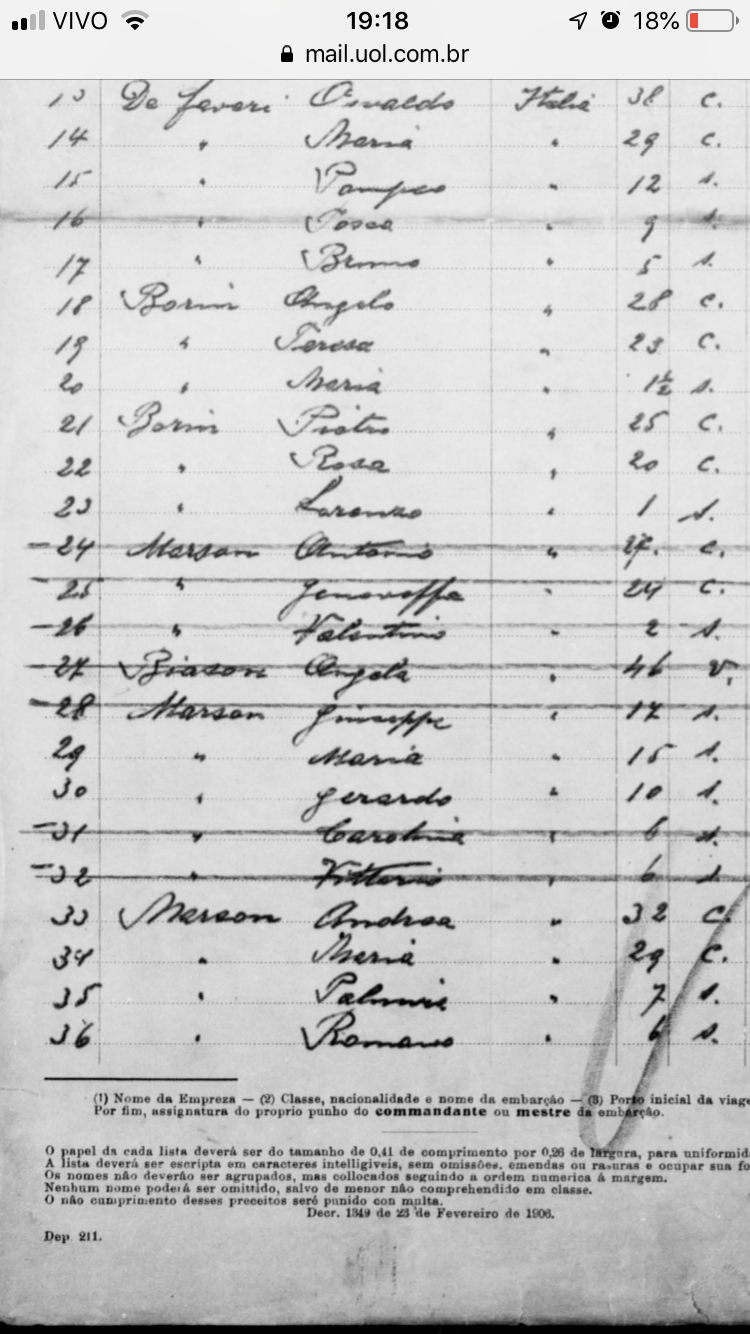 VIVO 19:18 18%
mail.uol.com.br
13 De Faveri Osvaldo Italia 38 c.
14 " Maria " 29 c.
15 " Pompeo " 12 s.
16 " Tosca " 9 s.
17 " Bruno " 5 s.
18 Borin Angelo " 28 c.
19 " Teresa " 23 c.
20 " Maria " 1½ s.
21 Borin Pietro " 25 c.
22 " Rosa " 20 c.
23 " Lorenzo " 1 s.
24 Marson Antonio " 27. c.
25 " Genoveffa " 24 c.
26 " Valentino " 2 s.
27 Biason Angela " 46 v.
28 Marson Giuseppe " 17 s.
29 " Maria " 15 s.
30 " Gerardo " 10 s.
31 " Carolina " 6 s.
32 " Vittorio " 6 s.
33 Marson Andrea " 32 c.
34 " Maria " 29 c.
35 " Palmira " 7 s.
36 " Romano " 6 s.
(1) Nome da Empreza — (2) Classe, nacionalidade e nome da embarção — (3) Porto inicial da viage
Por fim, assignatura do proprio punho do commandante ou mestre da embarção.
O papel da cada lista deverá ser do tamanho de 0,41 de comprimento por 0,26 de largura, para uniformid
A lista deverá ser escripta em caracteres intelligiveis, sem omissões, emendas ou rasuras e ocupar sua fo
Os nomes não deverão ser agrupados, mas collocados seguindo a ordem numerica á margem.
Nenhum nome poderá ser omittido, salvo de menor não comprehendido em classe.
O não cumprimento desses preceitos seré punido con multa.
Decr. 1349 de 23 de Fevereiro de 1906.
Dep 211.